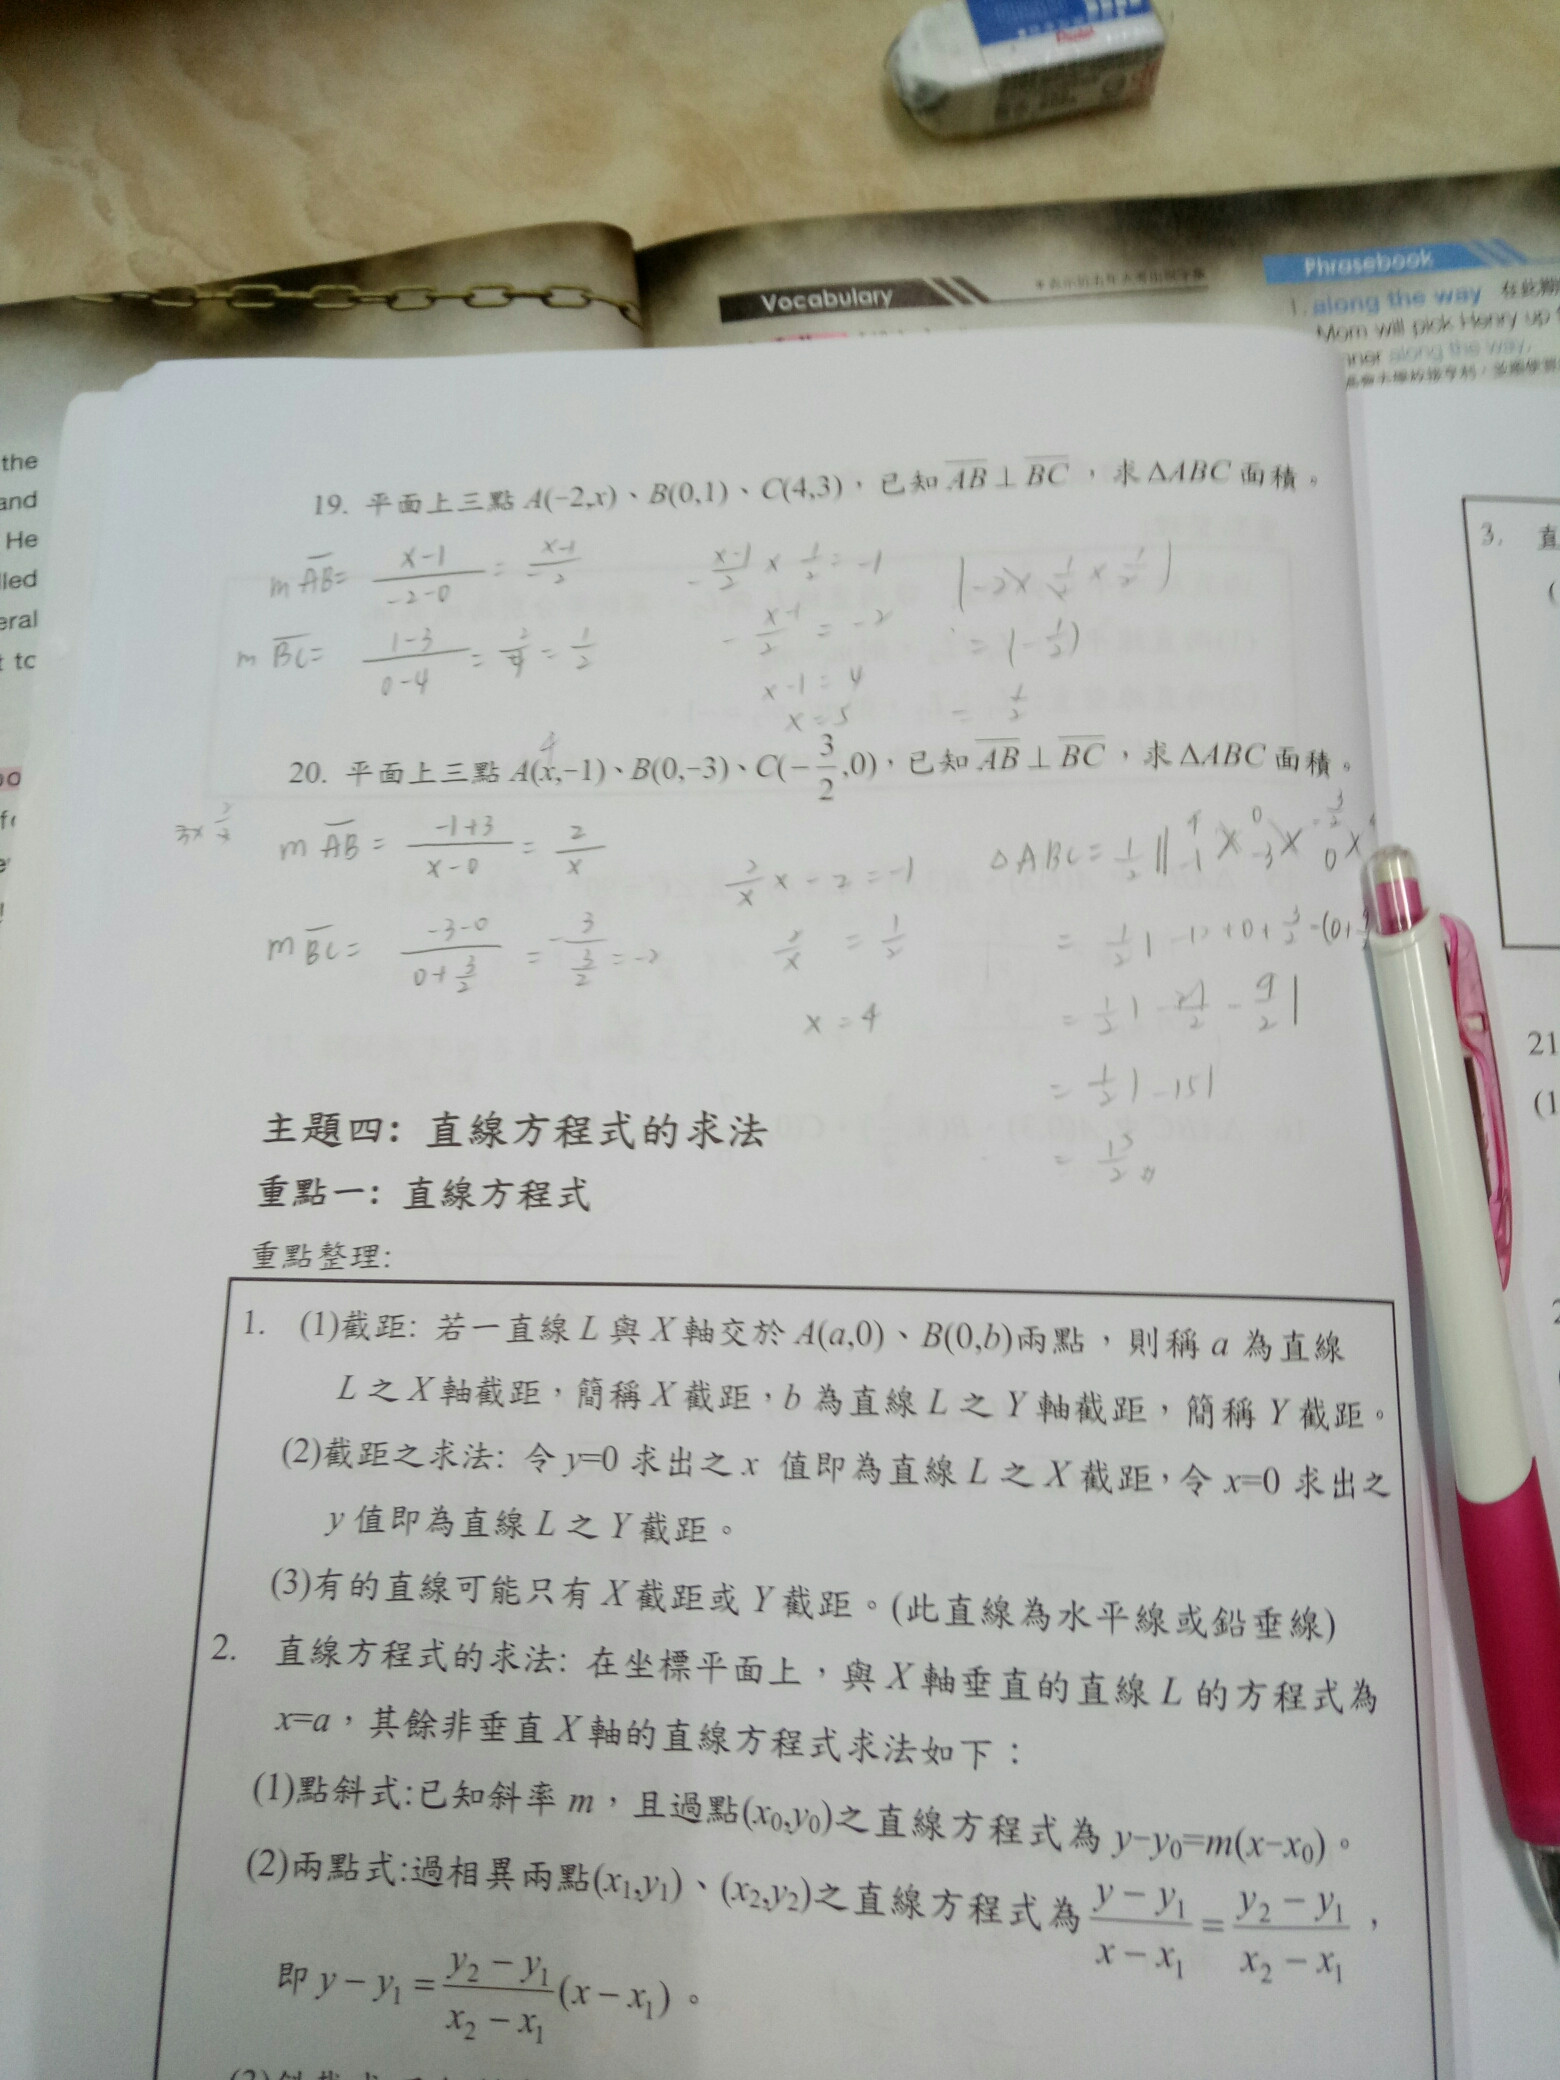 Pentel
Vocabulary
Phrasebook
1. along the way
Mom will pick Henry up
along the way.
the
and
He
lled
eral
t to
19. 平面上三點 A(−2,x)、B(0,1)、C(4,3)，已知 AB ⊥ BC ，求 ΔABC 面積。
m AB = x-1 / -2-0 = x-1 / -2
m BC = 1-3 / 0-4 = 2/4 = 1/2
- x-1/2 × 1/2 = -1
- x-1/2 = -2
x-1 = 4
x = 5
|-2× 1/2 × 1/2|
= |-1/2|
= 1/2
4
20. 平面上三點 A(x,−1)、B(0,−3)、C(−3/2,0)，已知 AB ⊥ BC ，求 ΔABC 面積。
m AB = -1+3 / x-0 = 2/x
m BC = -3-0 / 0+3/2 = -3 / 3/2 = -2
2/x × -2 = -1
2/x = 1/2
x = 4
ΔABC = 1/2 || 4 0 -3/2
-1 -3 0
= 1/2 | -12+0+3/2-(0+
= 1/2 | -21/2 - 9/2 |
= 1/2 |-15|
= 15/2
主題四: 直線方程式的求法
重點一: 直線方程式
重點整理:
1. (1)截距: 若一直線 L 與 X 軸交於 A(a,0)、B(0,b)兩點，則稱 a 為直線
L 之 X 軸截距，簡稱 X 截距，b 為直線 L 之 Y 軸截距，簡稱 Y 截距。
(2)截距之求法: 令 y=0 求出之 x 值即為直線 L 之 X 截距，令 x=0 求出之
y 值即為直線 L 之 Y 截距。
(3)有的直線可能只有 X 截距或 Y 截距。(此直線為水平線或鉛垂線)
2. 直線方程式的求法: 在坐標平面上，與 X 軸垂直的直線 L 的方程式為
x=a，其餘非垂直 X 軸的直線方程式求法如下：
(1)點斜式:已知斜率 m，且過點(x₀,y₀)之直線方程式為 y−y₀=m(x−x₀)。
(2)兩點式:過相異兩點(x₁,y₁)、(x₂,y₂)之直線方程式為 y − y₁ / x − x₁ = y₂ − y₁ / x₂ − x₁，
即 y − y₁ = y₂ − y₁ / x₂ − x₁ (x − x₁)。
3. 直
(
21
(1